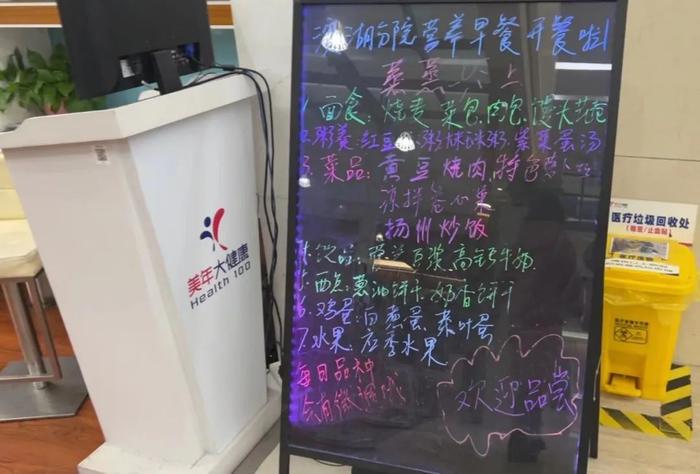 湖分院营养早餐开餐啦
蒸蒸日上
1.面食：烧麦 菜包 肉包
2.粥羹：红豆 粥 粥 紫菜蛋汤
3.菜品：黄豆烧肉 特色
凉拌卷心菜
扬州炒饭
饮品：豆浆 高钙牛奶
西点：葱油饼干 奶香饼干
6.鸡蛋：白煮蛋 茶叶蛋
7.水果：应季水果
每日品种
会有微调哦
欢迎品尝
美年大健康
Health 100
医疗垃圾回收处